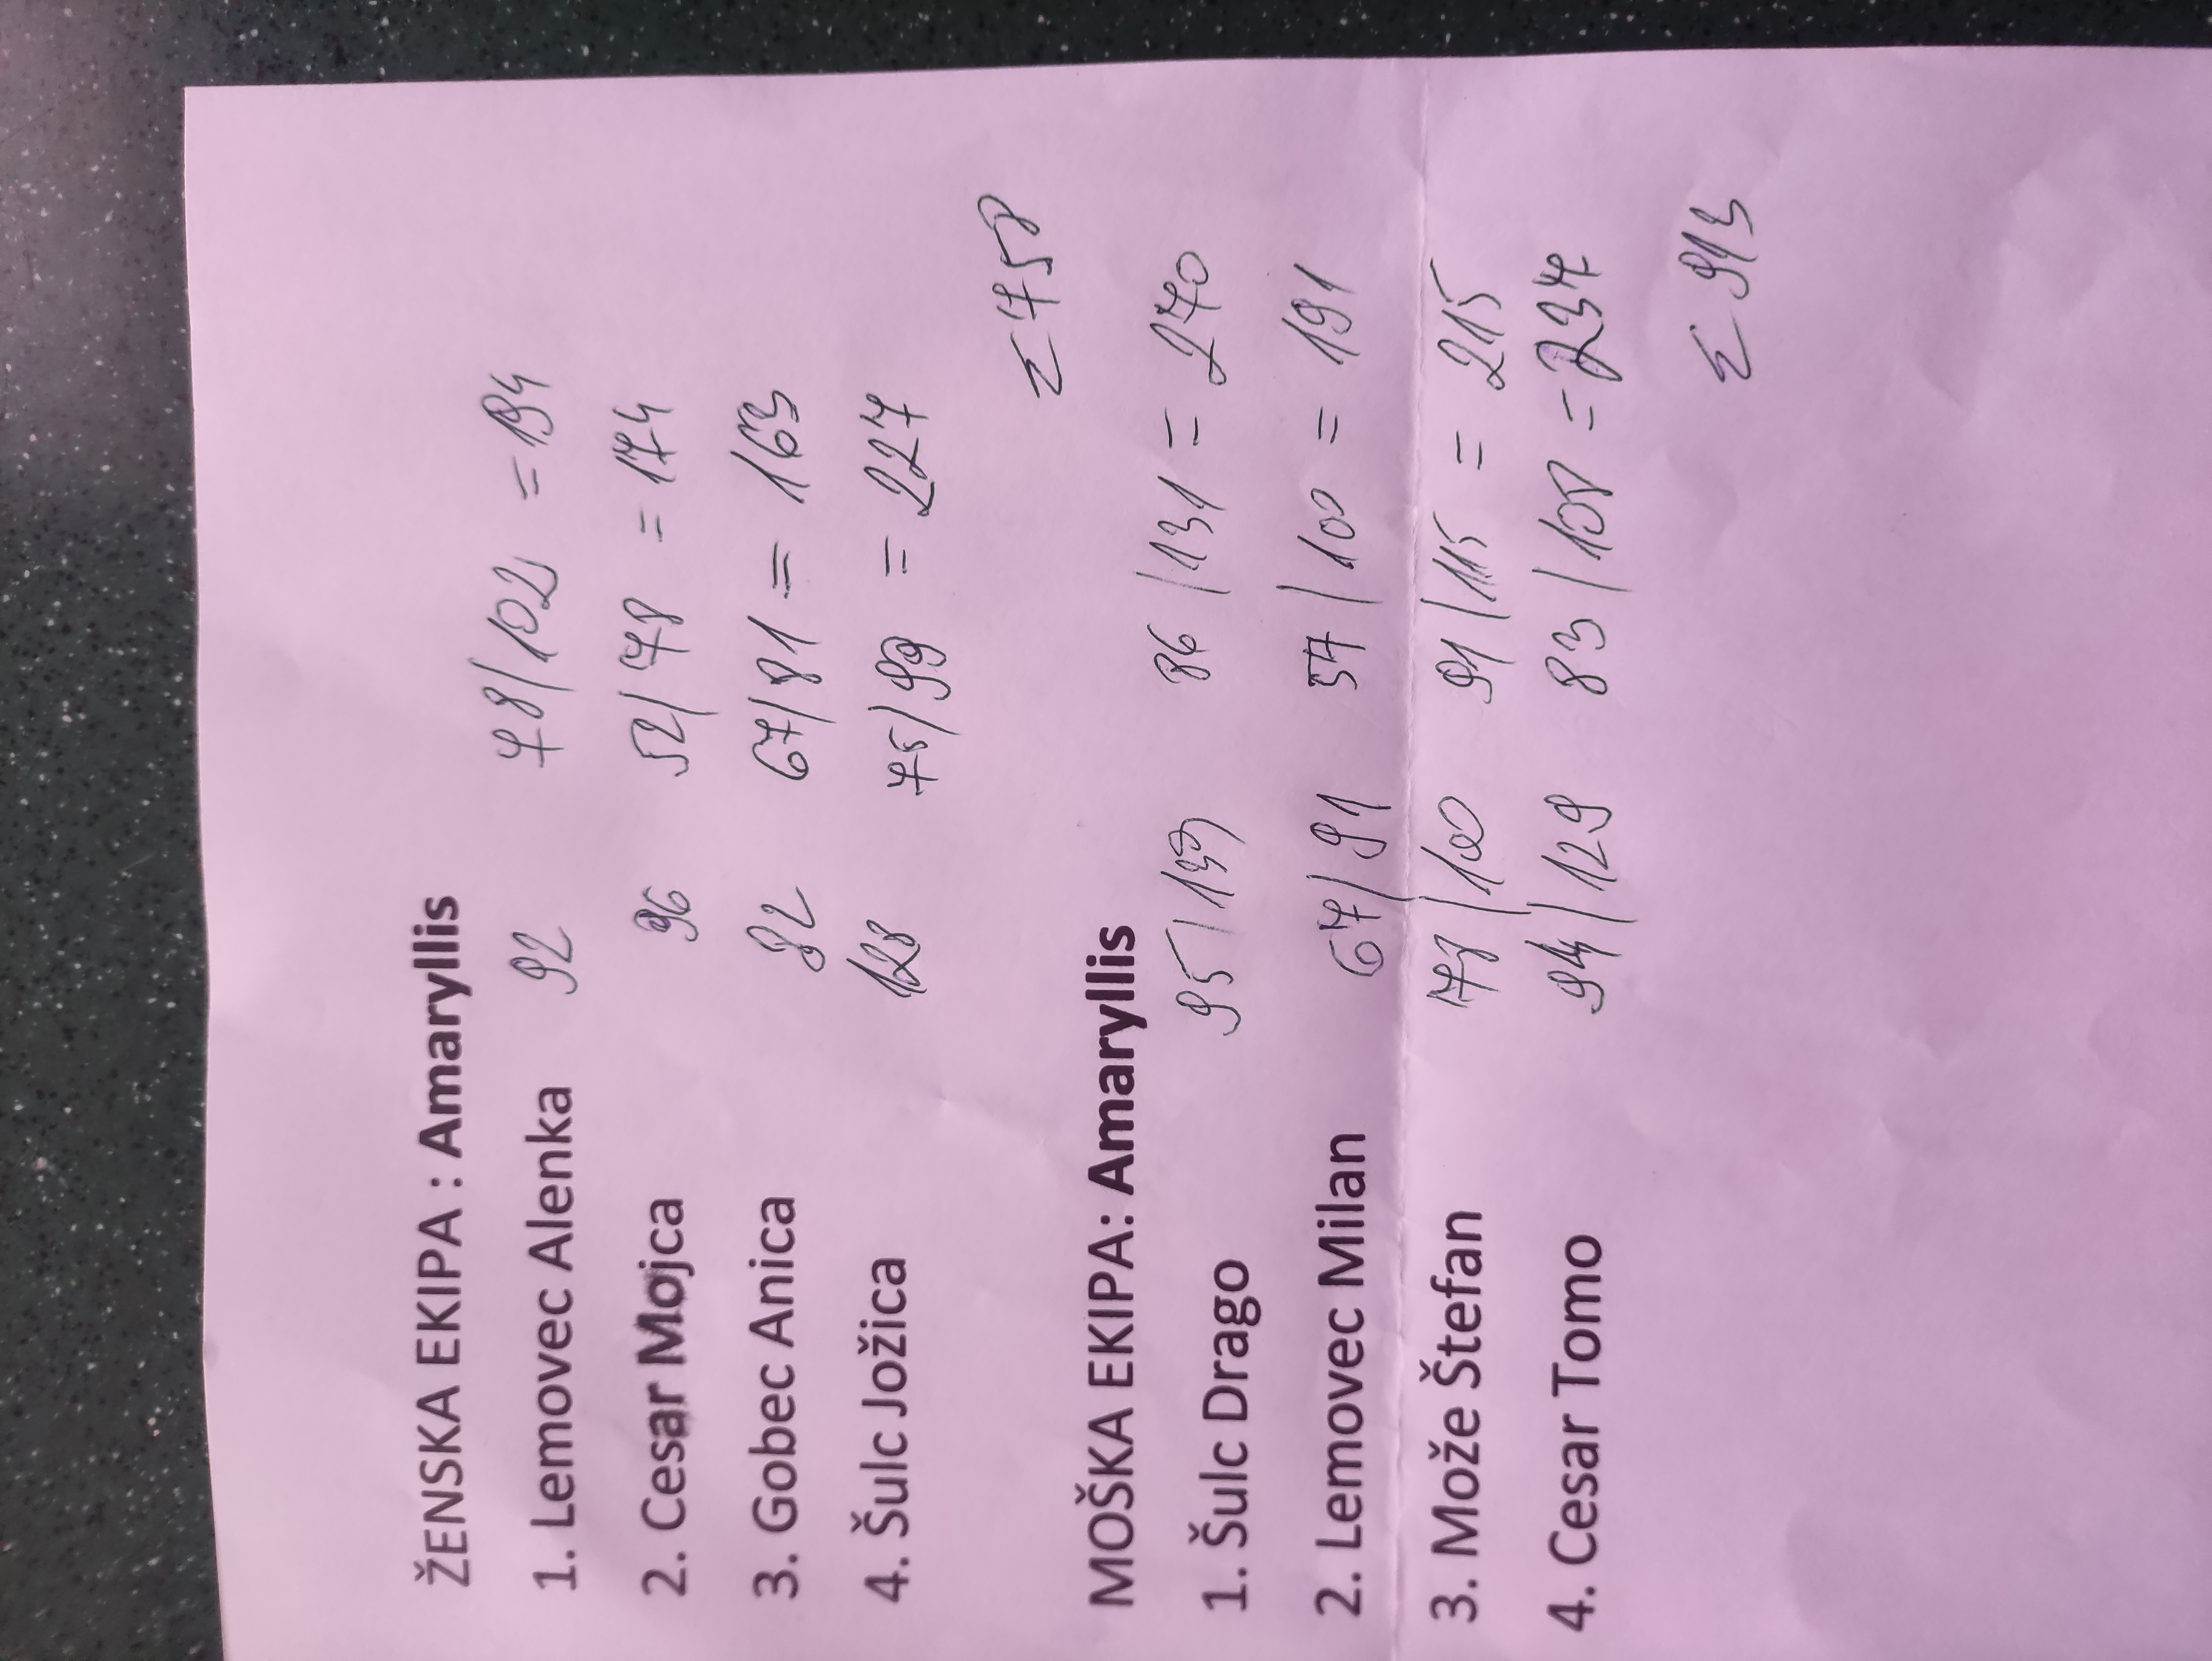 ŽENSKA EKIPA : Amaryllis
1. Lemovec Alenka 92 78/102 = 194
2. Cesar Mojca 96 52/78 = 174
3. Gobec Anica 82 67/81 = 163
4. Šulc Jožica 128 75/99 = 227
Σ 758
MOŠKA EKIPA: Amaryllis
1. Šulc Drago 95/139 86/131 = 270
2. Lemovec Milan 67/91 57/100 = 191
3. Može Štefan 78/100 91/115 = 215
4. Cesar Tomo 94/129 83/108 = 237
Σ 913